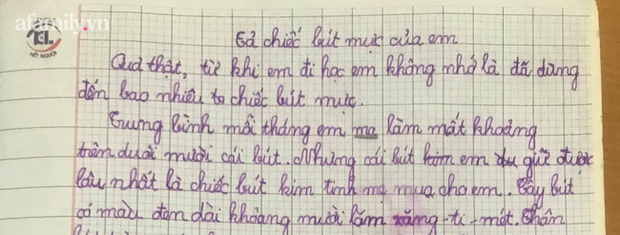 afamily.vn
KL
NÉT NGƯỜI
Tả chiếc bút mực của em
Quả thật, từ khi em đi học em không nhớ là đã dùng
đến bao nhiêu to chiếc bút mực.
Trung bình mỗi tháng em ma làm mất khoảng
trên dưới mười cái bút. Nhưng cái bút kim em du giữ được
lâu nhất là chiếc bút kim tinh mẹ mua cho em. Cây bút
có màu đen dài khoảng mười lăm xăng-ti-mét. Thân